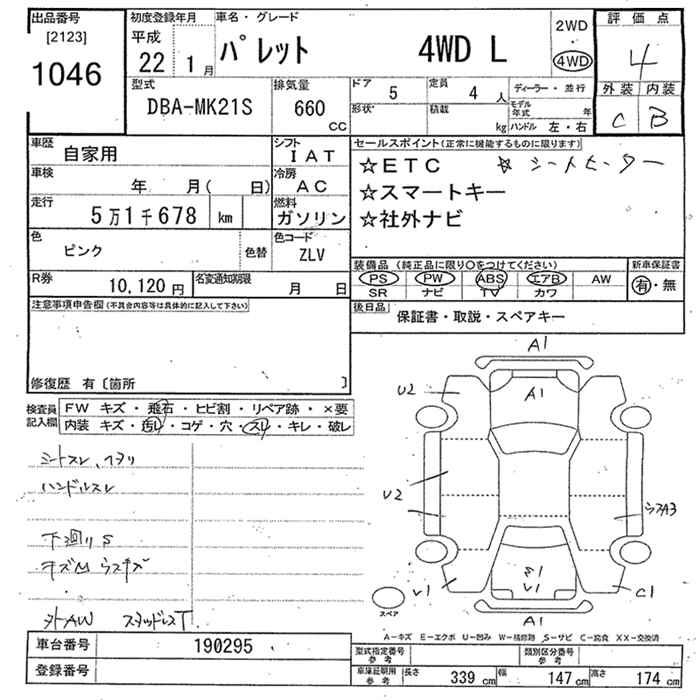 出品番号 初度登録年月 車名・グレード 2WD 評価点
[2123] 平成 パレット 4WD L ・ 4
1046 22 1月 4WD 外装 内装
型式 排気量 ドア 5 定員 4人 ディーラー・並行 C B
DBA-MK21S 660 形状 積載 モデル年式 年
CC kg ハンドル 左・右
車歴 自家用 シフト IAT セールスポイント(正常に機能するものに限ります)
車検 年 月( 日) 冷房 AC ☆ETC ☆シートヒーター
走行 5万1千678 km 燃料 ガソリン ☆スマートキー
☆社外ナビ
色 ピンク 色替 色コード ZLV
装備品(純正品に限り○をつけてください) 新車保証書
R券 10,120円 名変通知期限 月 日 PS PW ABS エアB AW 有・無
SR ナビ TV カワ
注意事項申告欄(不具合内容等は具体的に記入して下さい) 後日品 保証書・取説・スペアキー
修復歴 有〔箇所 〕
検査員記入欄 FW キズ・飛石・ヒビ割・リペア跡・×要
内装 キズ・汚レ・コゲ・穴・スレ・キレ・破レ
シートスレ、ヘタリ
ハンドルスレ
下廻りS
キズM ウスキズ
外AW スタッドレスT
A1
A1
U2
U2
ウスA3
V1
C1
V1
A1
スペア
A-キズ E-エクボ U-凹み W-補修跡 S-サビ C-腐食 XX-交換済
車台番号 190295 型式指定番号 参考 類別区分番号 参考
登録番号 車庫証明用 参考 長さ 339cm 幅 147cm 高さ 174cm